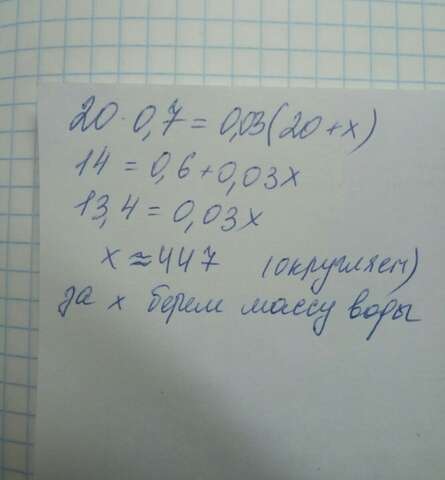 20·0,7=0,03(20+x)
14=0,6+0,03x
13,4=0,03x
x≈447 (округляем)
за x берем массу воды